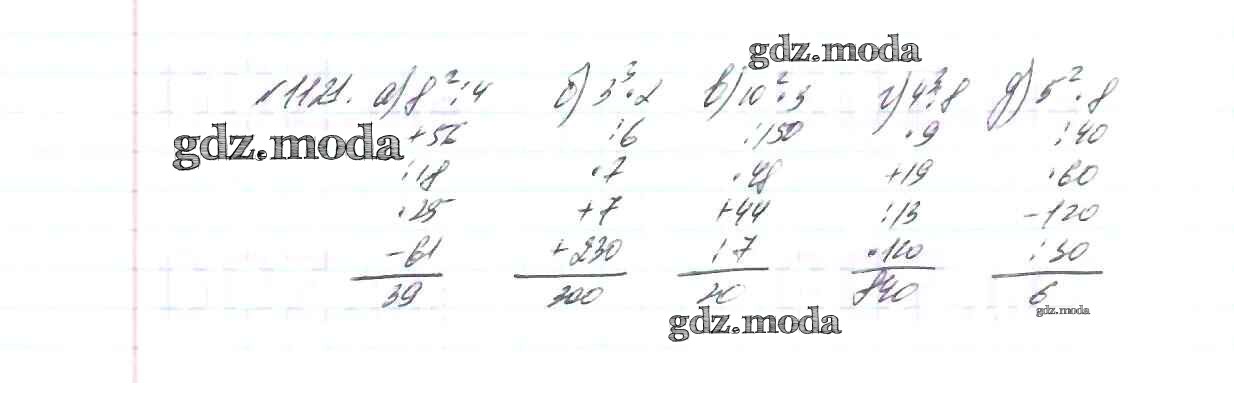 gdz.moda
№1121. а) 8²:4 б) 3³·2 в) 10²·3 г) 4³:8 д) 5²·8
+56 :6 :150 ·9 :40
gdz.moda
:18 ·7 ·48 +19 ·60
·25 +7 +44 :13 -120
-61 +230 :7 ·120 :30
39 300 20 840 6
gdz.moda
gdz.moda